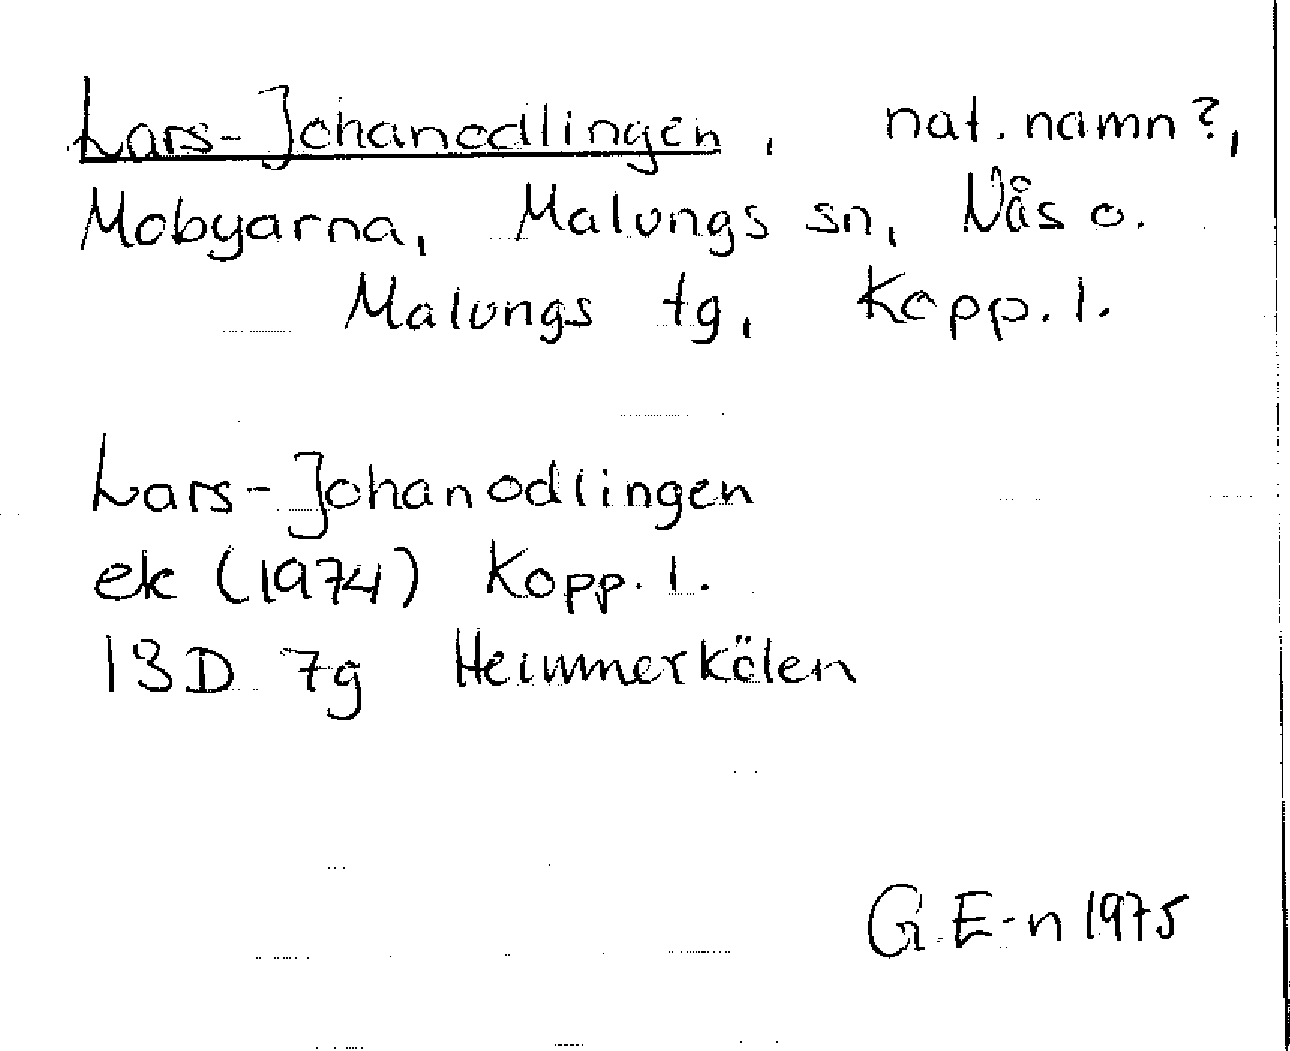 Lars-Johanodlingen, nat. namn?,
Mobyarna, Malungs sn, Nås o.
Malungs tg, Kopp. l.
Lars-Johanodlingen
ek (1974) Kopp. l.
13D 7g Heimmerkölen
G. E-n 1975